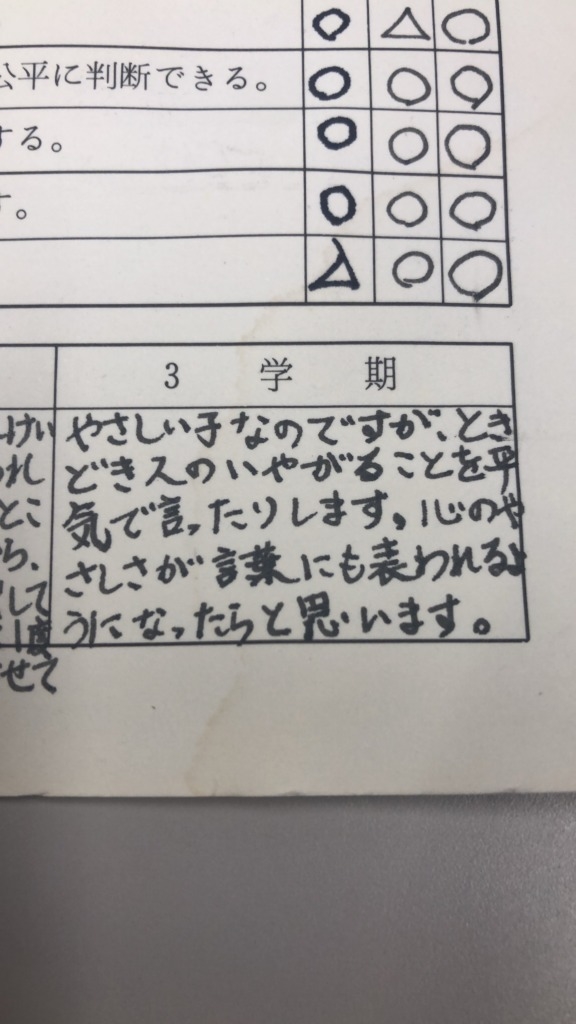 ○ △ ○
公平に判断できる。 ○ ○ ○
する。 ○ ○ ○
す。 ○ ○ ○
△ ○ ○
3 学 期
けい
れ
とこ
ら、
して
1度
せて
やさしい子なのですが、とき
どき人のいやがることを平
気で言ったりします。心のや
さしさが言葉にも表われるよ
うになったらと思います。